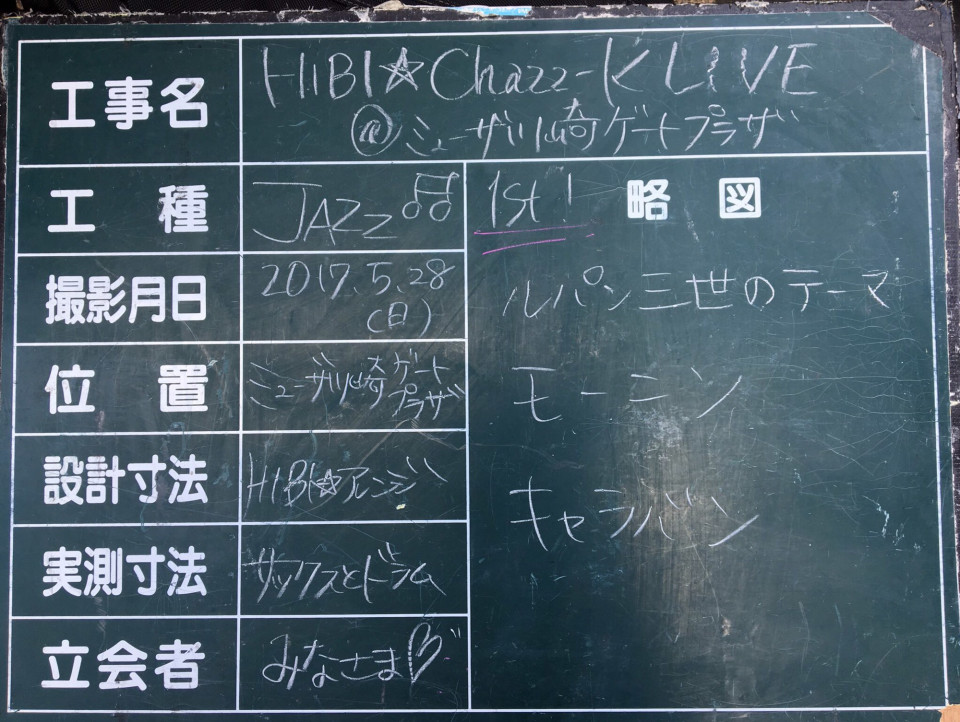 工事名
HIBI☆Chazz-K LIVE
@ミューザ川崎ゲートプラザ
工種
JAZZ♫
1st!
略図
撮影月日
2017.5.28
(日)
ルパン三世のテーマ
位置
ミューザ川崎ゲート
プラザ
モーニン
設計寸法
HIBI☆アレンジ
キャラバン
実測寸法
サックスとドラム
立会者
みなさま♡